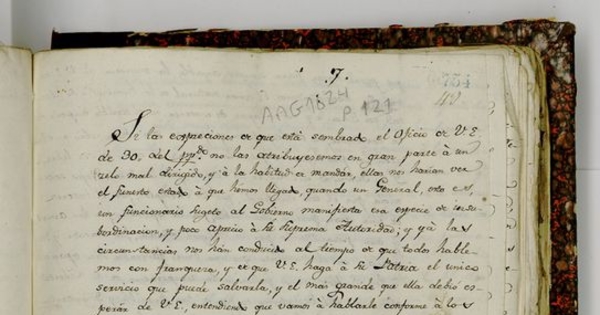 7.
754
40
AAG1824
P 121
Si las expreciones de que está sembrado el Oficio de V.E.
de 30. del ppdo. no las atribuyesemos en gran parte á un
zelo mal dirigido, y á la habitud de mandar, ellas nos harian ver
el funesto estado à que hemos llegado, quando un General, esto es,
un funcionario sugeto al Gobierno manifiesta esa especie de insu-
bordinacion, y poco aprecio à la suprema Autoridad; y yá las
circunstancias nos hán conducido al tiempo de que todos hable-
mos con franqueza, y de que V.E. haga à la Patria el unico
servicio que puede salvarla, y el mas grande que ella debió es-
perár de V.E., entendiendo que vamos à hablarle conforme à los